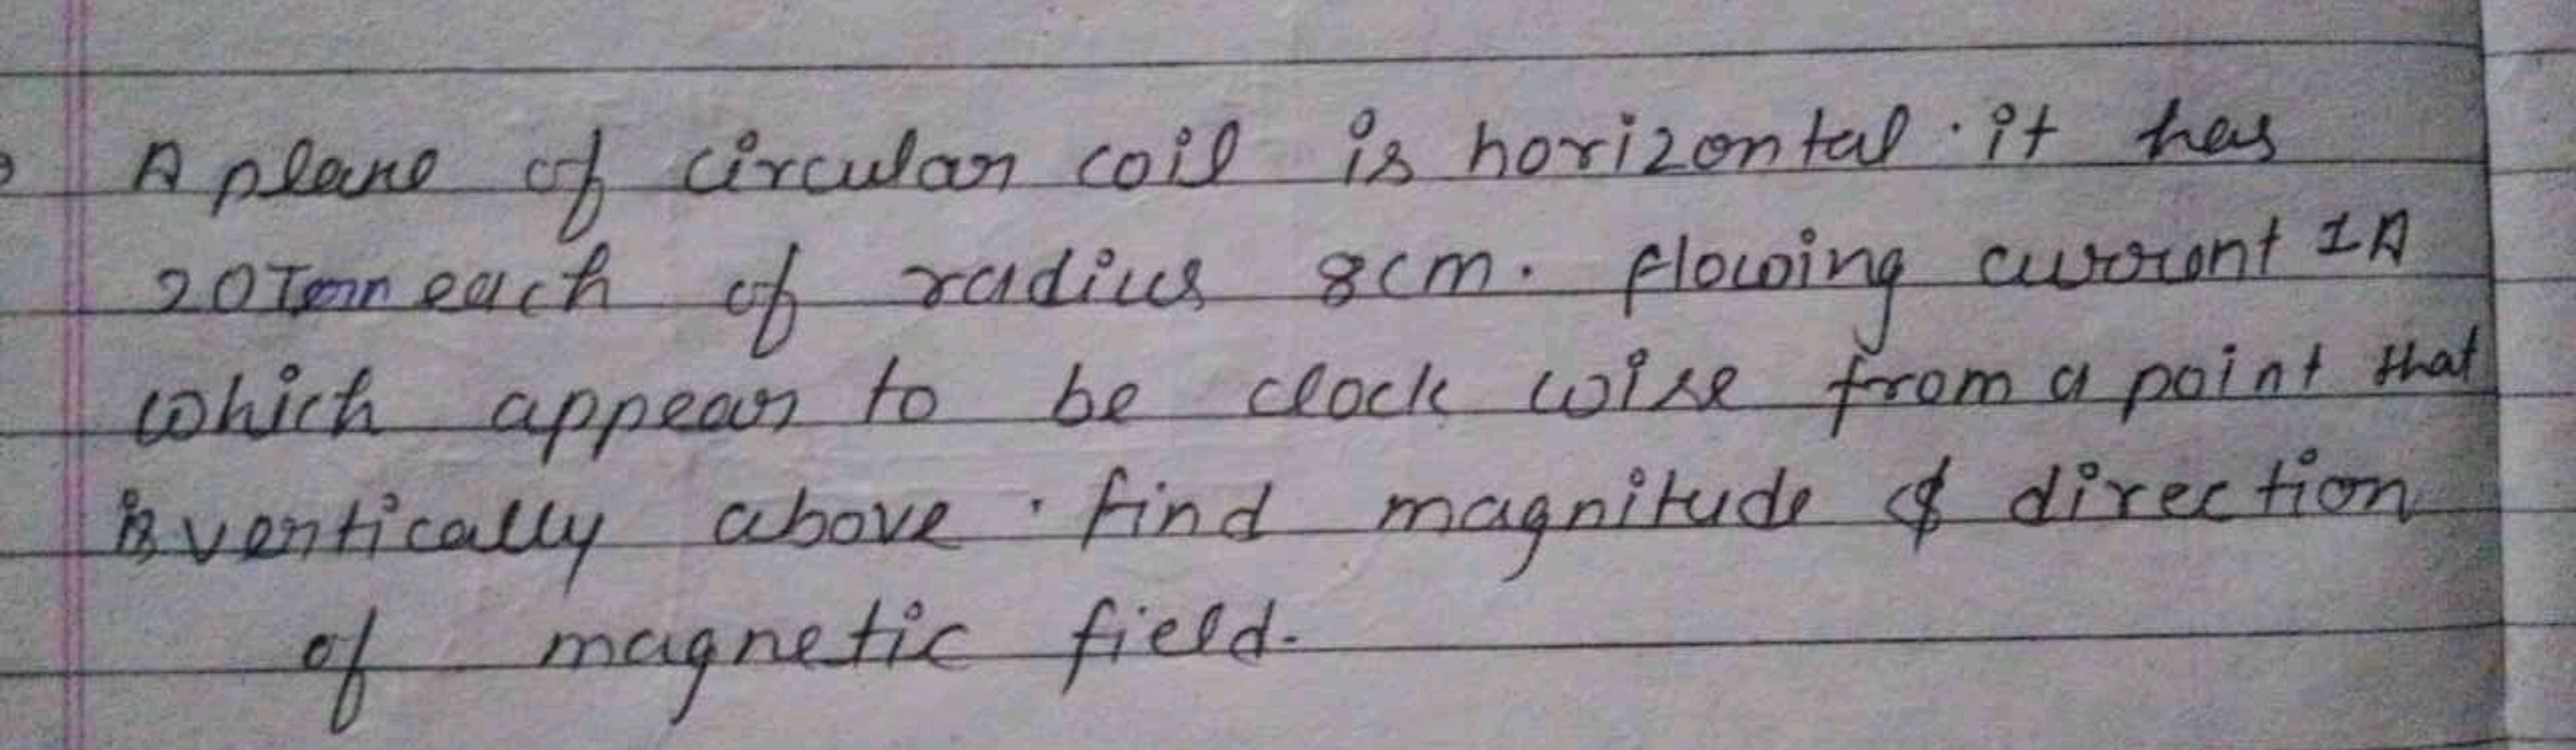 A plane of circular coil is horizontal. it has
20 Turn each of radius 8cm. flowing current 1A
which appear to be clock wise from a point that
is vertically above. find magnitude & direction
of magnetic field.